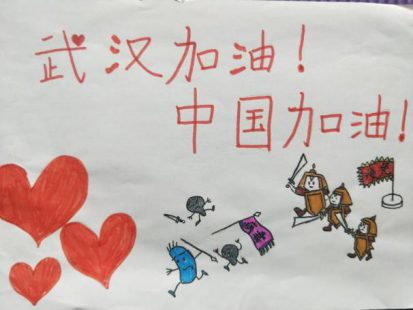 武汉加油！
中国加油！